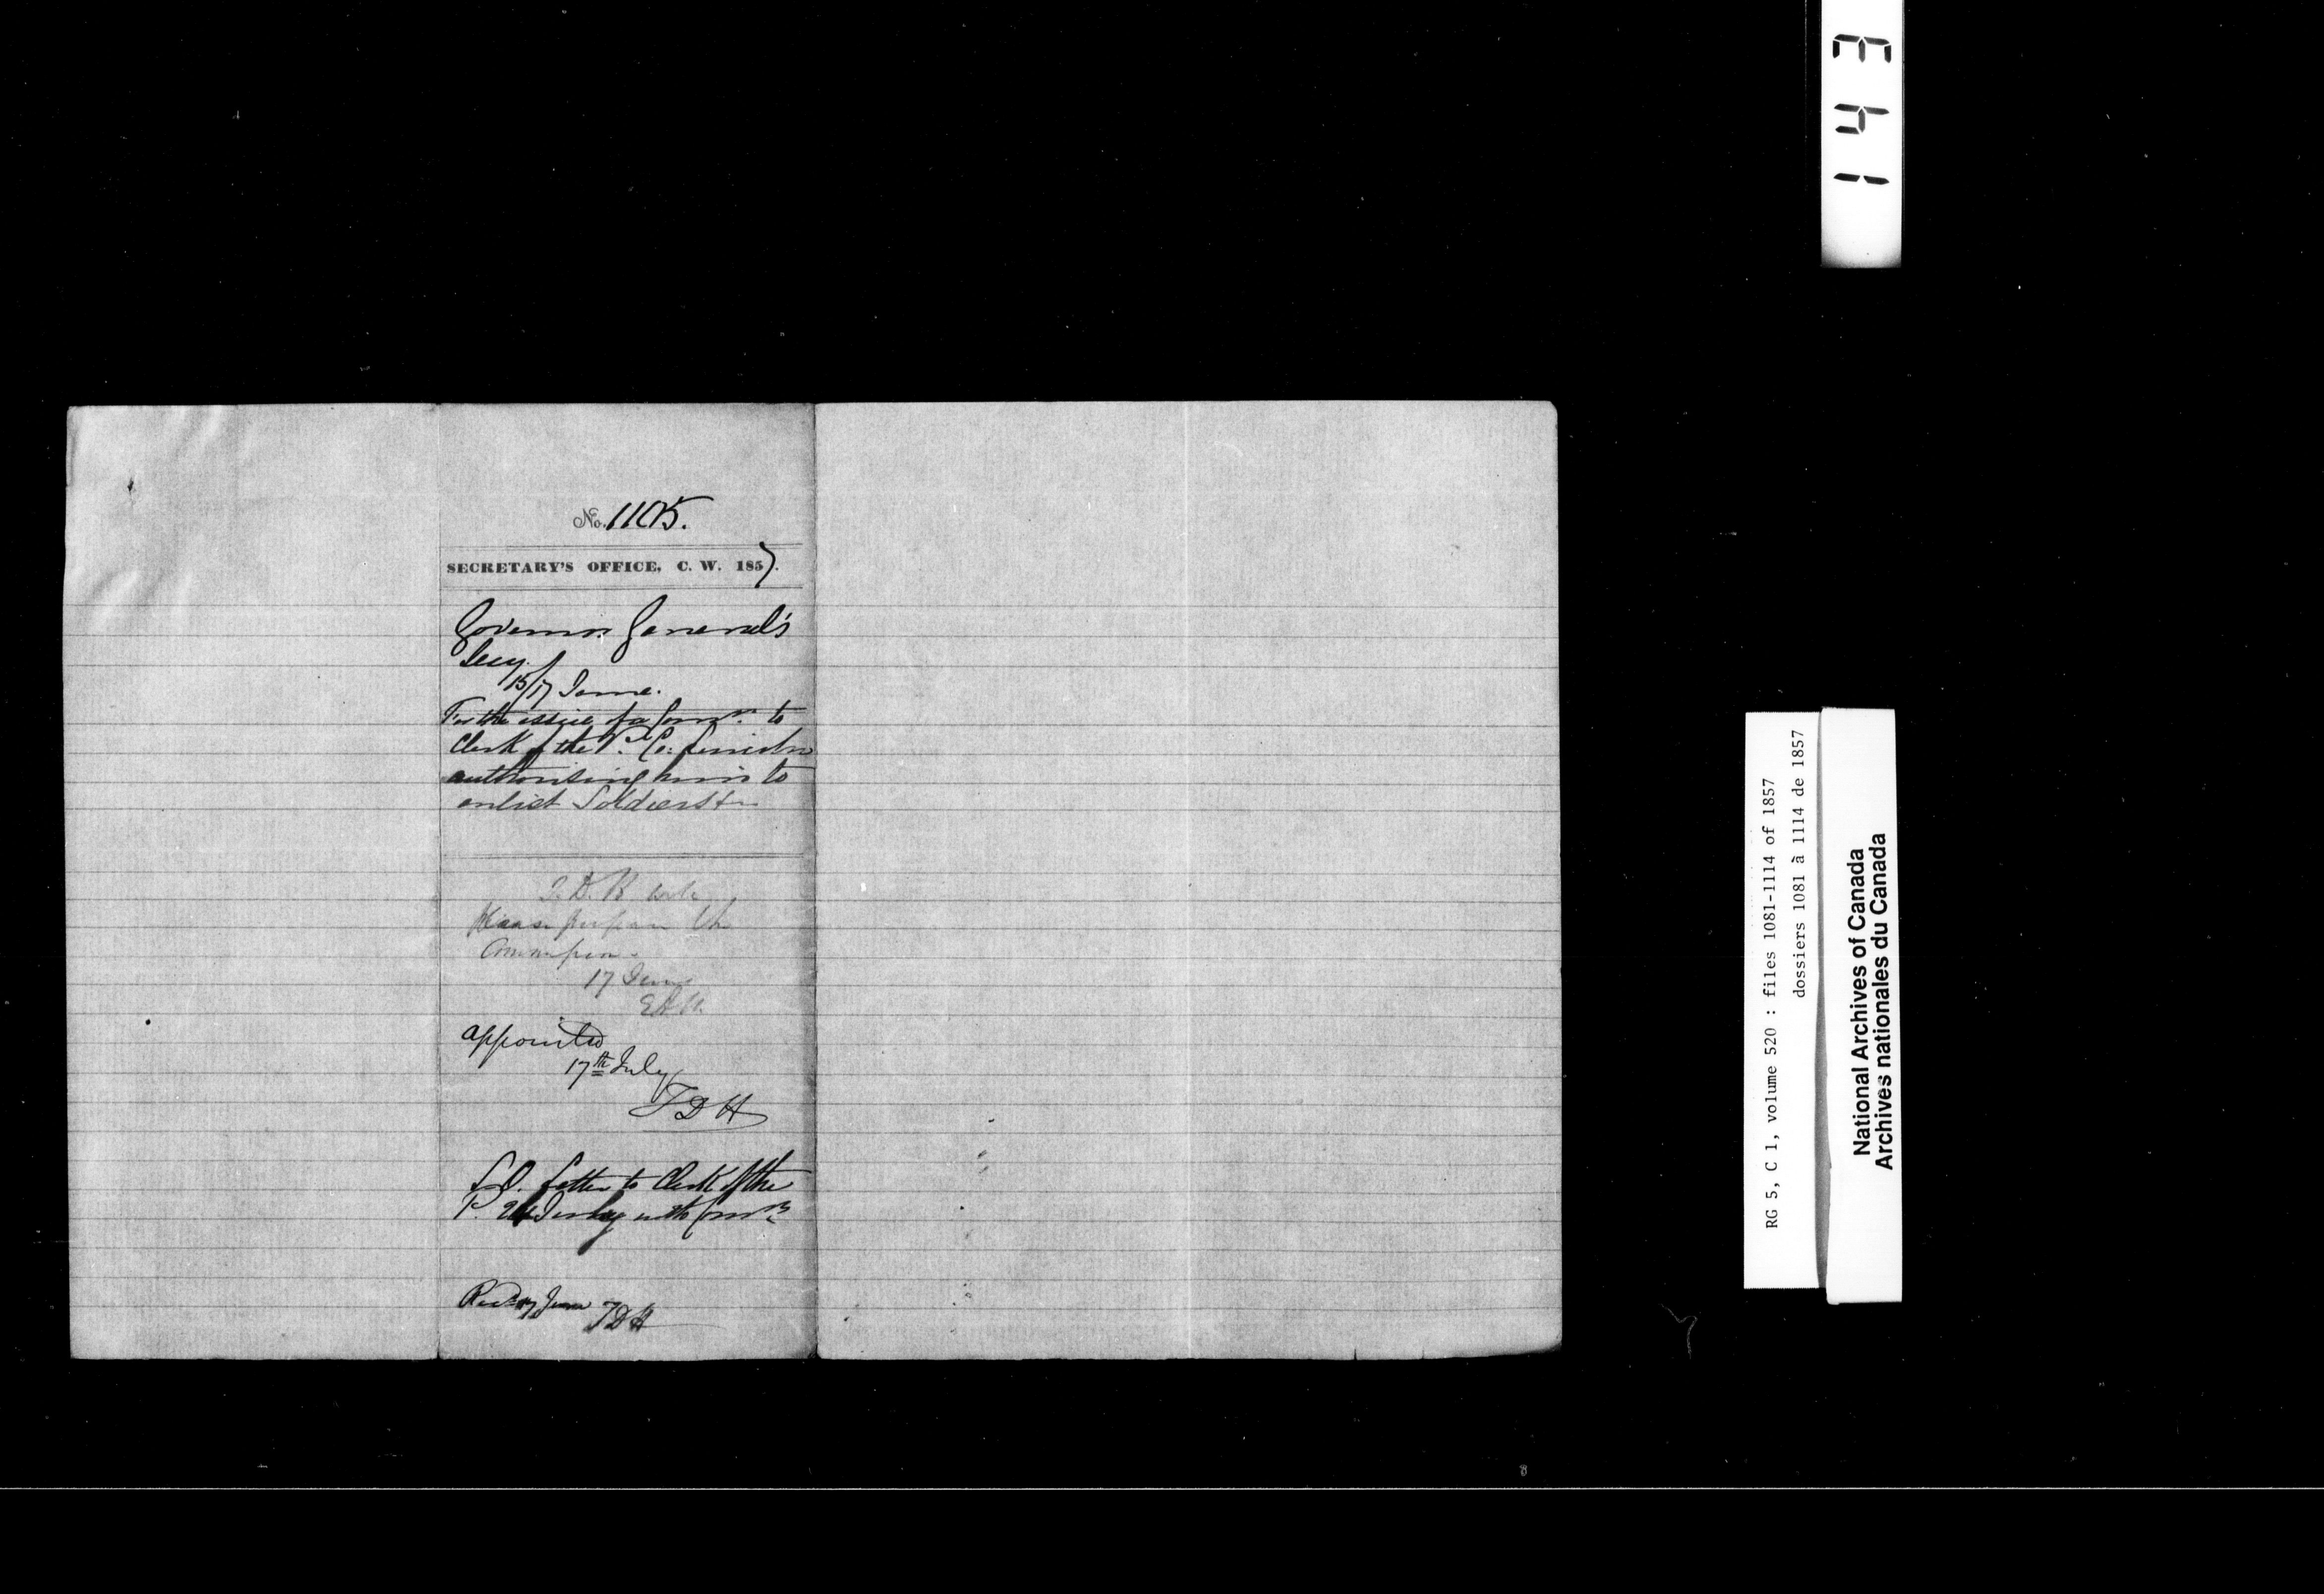 No. 1105.
SECRETARY'S OFFICE, C. W. 1857.
Governor General's
Secy.
15/17 June.
For the issue of a Commn. to
Clerk of the Pce. Co:
authorising him to
enlist Soldiers &c
Please prepare the
Commission.
17 June
E.A.M.
appointed
17th July
TDH
L.O. Letter to Clerk of the
P. with Commn
Recd 17 June TDH
143
RG 5, C 1, volume 520 : files 1081-1114 of 1857
dossiers 1081 à 1114 de 1857
National Archives of Canada
Archives nationales du Canada